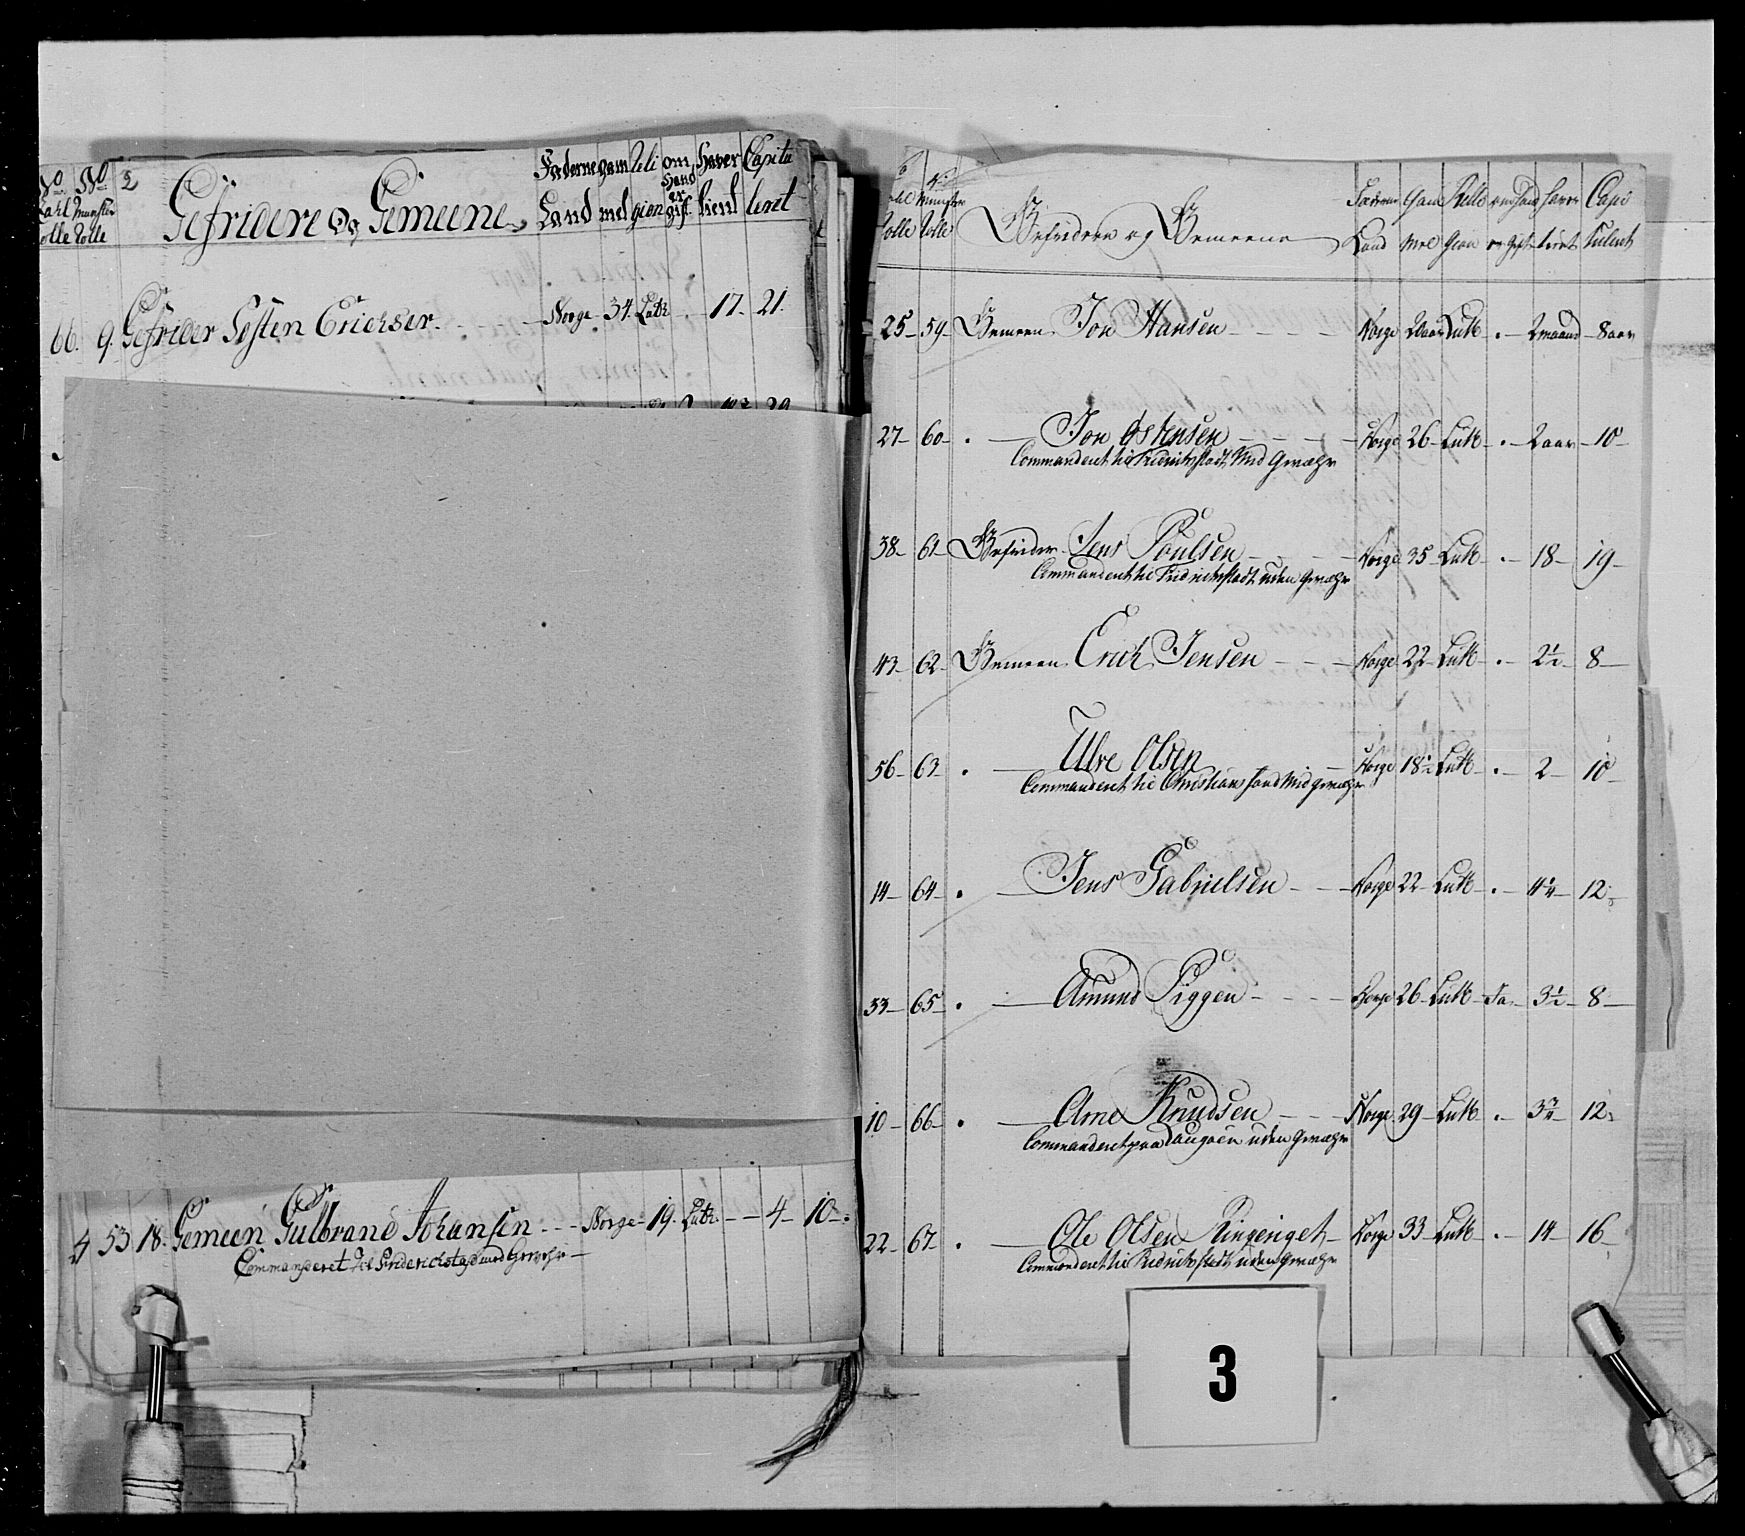 No No 2
Munster
Rolle Rolle
Gefridere Og Gemeene
Fæderne gam Reli om Haver Capitu
Hand
Land mel gion er gift tient leret
66. 9. Gefrider Tosten Erichsen - Norge 34 Luth. 17 21
4 53 18. Gemeen Gulbrand Johansen - - - Norge 19 Luth. - - 4 - 10
Commanderet til Friderichstad med Gevæhr
Munster
Rolle Rolle
Gefridere og Gemeene
Fæderne Gam Relli om hand haver Capi
Land mel Gion er Gift tient tulent
25 - 59 - Gemeen Jon Hansen - - - - Norge Luth - 2 maand - 8 aar
27 - 60 - Jon Østensen - - - - Norge 26 - Luth - 2 aar - 10 -
Commanderet til Fridrichstadt Med Gevæhr
38 - 61 - Gefrider Jens Poulsen - - - Norge 35 Luth - 18 - 19 -
Commanderet til Fridrichstadt uden Gevæhr
43 - 62 - Gemeen Erich Jensen - - - Norge 22 Luth - 2½ - 8 -
56 - 63 - Ulve Olsen - Norge 18½ Luth - 2 - 10 -
Commanderet til Christiansand Med Gevæhr
14 - 64 - Jens Gabrielsen - - - Norge 22 - Luth - 4¼ - 12
33 - 65 - Amund Siggen - - - Norge 26 - Luth - Ja - 3½ - 8 -
10 - 66 - Arne Knudsen - - - Norge 29 - Luth - 3¾ 12
Commanderet paa Laugøen uden Gevæhr
22 - 67 - Ole Olsen Ringeriget - Norge 33 - Luth - 14 - 16 -
Commanderet til Fridrichstadt uden Gevæhr
3